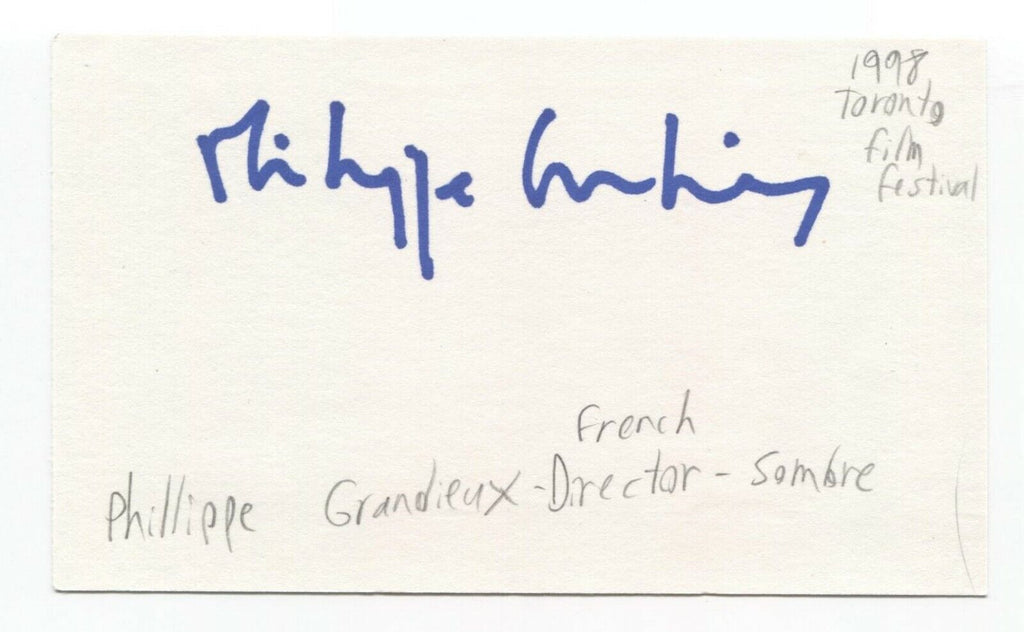 1998
Toronto
Film
Festival
Philippe Grandrieux
French
Phillippe Grandieux - Director - Sombre